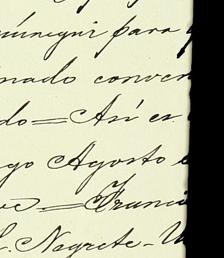 para
nado conven
do = Así es
go Agosto
= Franci
Nagrete - U